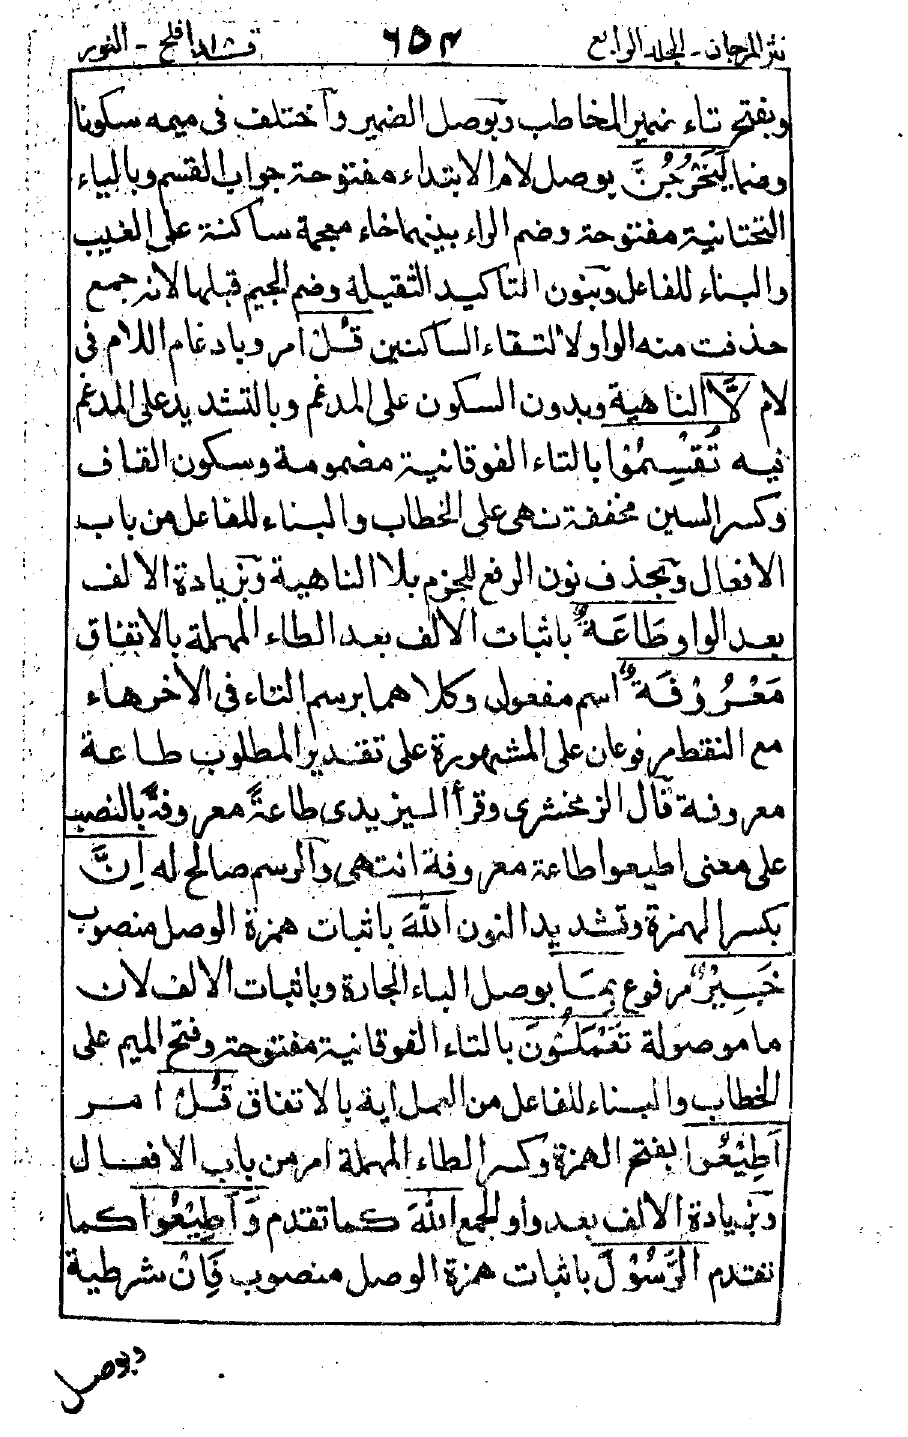 نثر المرجان - الجلد الرابع ٦٥٤ قد افلح - النور
وبفتح تاء ضمير المخاطب وبوصل الضمير واختلف فى ميمه سكونا
وضما لَيَخْرُجُنَّ بوصل لام الابتداء مفتوحة جواب القسم وبالياء
التحتانية مفتوحة وضم الراء بينهما خاء معجمة ساكنة على الغيب
والبناء للفاعل وبنون التاكيد الثقيلة وضم الجيم قبلها لانه جمع
حذفت منه الواو لالتقاء الساكنين قُلْ امر وبادغام اللام فى
لام لَّا الناهية وبدون السكون على المدغم وبالتشديد على المدغم
فيه تُقْسِمُوْا بالتاء الفوقانية مضمومة وسكون القاف
وكسر السين مخففة نهى على الخطاب والبناء للفاعل من باب
الافعال وبحذف نون الرفع للجزم بلا الناهية وبزيادة الالف
بعد الواو طَاعَةٌ باثبات الالف بعد الطاء المهملة بالاتفاق
مَعْرُوْفَةٌ اسم مفعول وكلاهما برسم التاء فى الاخر هاء
مع النقط مرفوعان على المشهورة على تقدير المطلوب طاعة
معروفة قال الزمخشرى وقرأ اليزيدى طاعةً معروفةً بالنصب
على معنى اطيعوا طاعة معروفة انتهى والرسم صالح له اِنَّ
بكسر الهمزة وتشديد النون اللّٰهَ باثبات همزة الوصل منصوب
خَبِيْرٌ مرفوع بِمَا بوصل الباء الجارة وباثبات الالف لان
ما موصولة تَعْمَلُوْنَ بالتاء الفوقانية مفتوحة وفتح الميم على
الخطاب والبناء للفاعل من العمل اية بالاتفاق قُلْ امر
اَطِيْعُوا بفتح الهمزة وكسر الطاء المهملة امر من باب الافعال
وبزيادة الالف بعد واو الجمع اللّٰهَ كما تقدم وَاَطِيْعُوا كما
تقدم الرَّسُوْلَ باثبات همزة الوصل منصوب فَاِنْ شرطية
وبوصل